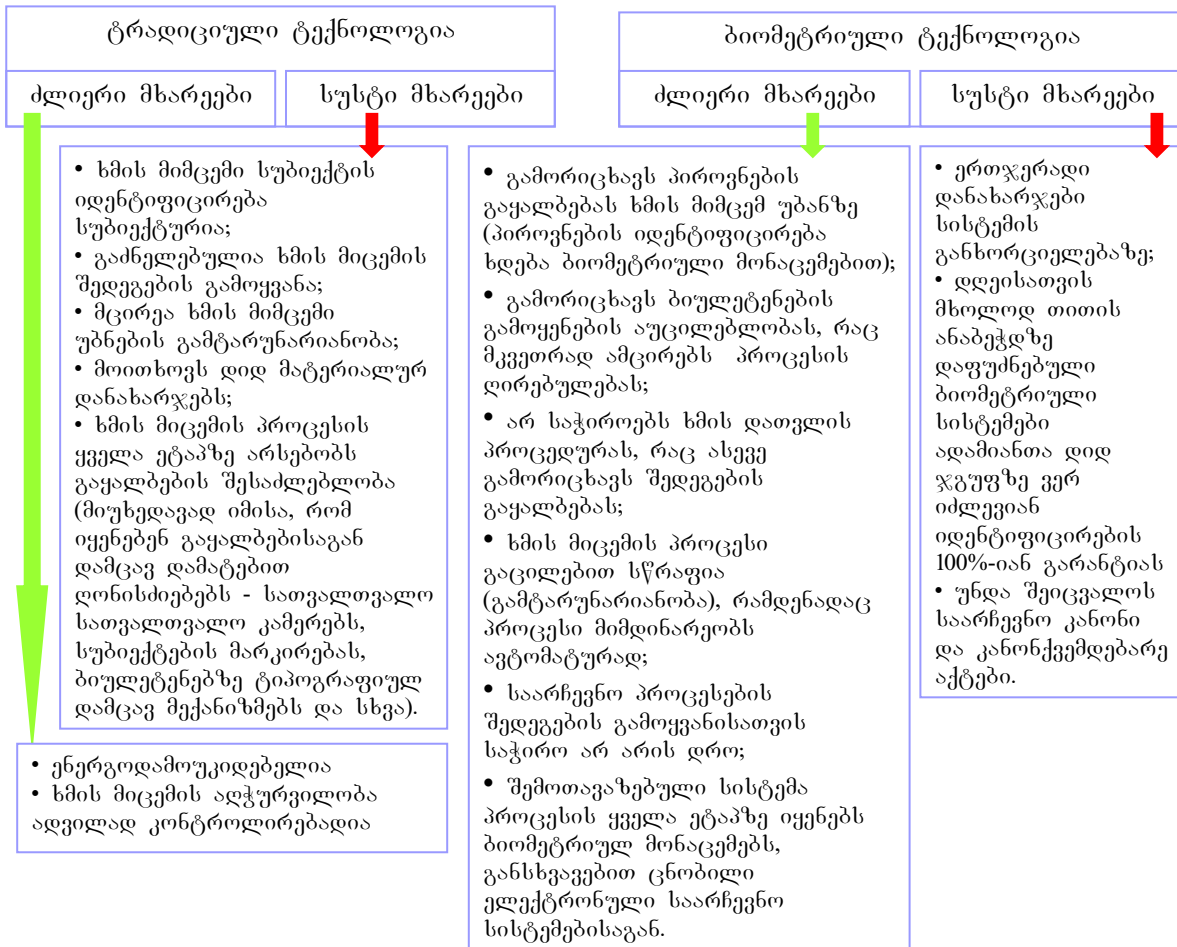 ტრადიციული ტექნოლოგია
ძლიერი მხარეები
სუსტი მხარეები
• ხმის მიმცემი სუბიექტის
იდენტიფიცირება
სუბიექტურია;
• გაძნელებულია ხმის მიცემის
შედეგების გამოყვანა;
• მცირეა ხმის მიმცემი
უბნების გამტარუნარიანობა;
• მოითხოვს დიდ მატერიალურ
დანახარჯებს;
• ხმის მიცემის პროცესის
ყველა ეტაპზე არსებობს
გაყალბების შესაძლებლობა
(მიუხედავად იმისა, რომ
იყენებენ გაყალბებისაგან
დამცავ დამატებით
ღონისძიებებს - სათვალთვალო
სათვალთვალო კამერებს,
სუბიექტების მარკირებას,
ბიულეტენებზე ტიპოგრაფიულ
დამცავ მექანიზმებს და სხვა).
• ენერგოდამოუკიდებელია
• ხმის მიცემის აღჭურვილობა
ადვილად კონტროლირებადია
ბიომეტრიული ტექნოლოგია
ძლიერი მხარეები
სუსტი მხარეები
• გამორიცხავს პიროვნების
გაყალბებას ხმის მიმცემ უბანზე
(პიროვნების იდენტიფიცირება
ხდება ბიომეტრიული მონაცემებით);
• გამორიცხავს ბიულეტენების
გამოყენების აუცილებლობას, რაც
მკვეთრად ამცირებს პროცესის
ღირებულებას;
• არ საჭიროებს ხმის დათვლის
პროცედურას, რაც ასევე
გამორიცხავს შედეგების
გაყალბებას;
• ხმის მიცემის პროცესი
გაცილებით სწრაფია
(გამტარუნარიანობა), რამდენადაც
პროცესი მიმდინარეობს
ავტომატურად;
• საარჩევნო პროცესების
შედეგების გამოყვანისათვის
საჭირო არ არის დრო;
• შემოთავაზებული სისტემა
პროცესის ყველა ეტაპზე იყენებს
ბიომეტრიულ მონაცემებს,
განსხვავებით ცნობილი
ელექტრონული საარჩევნო
სისტემებისაგან.
• ერთჯერადი
დანახარჯები
სისტემის
განხორციელებაზე;
• დღეისათვის
მხოლოდ თითის
ანაბეჭდზე
დაფუძნებული
ბიომეტრიული
სისტემები
ადამიანთა დიდ
ჯგუფზე ვერ
იძლევიან
იდენტიფიცირების
100%-იან გარანტიას
• უნდა შეიცვალოს
საარჩევნო კანონი
და კანონქვემდებარე
აქტები.